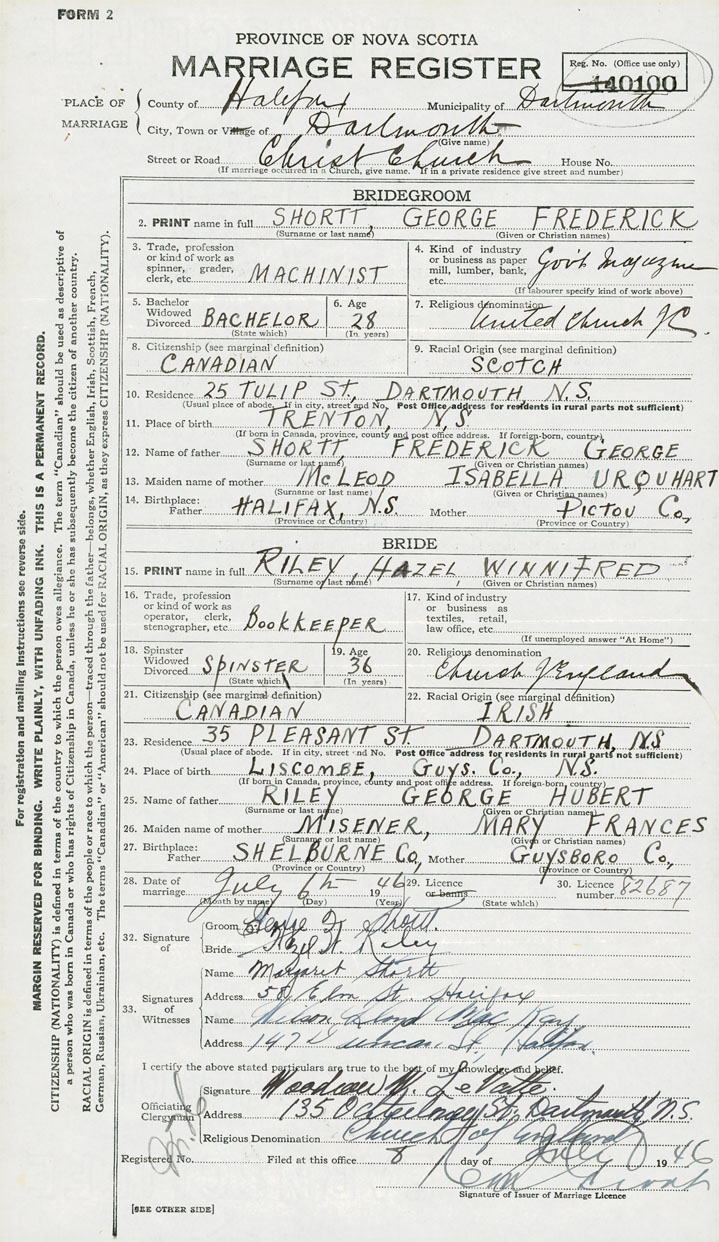 FORM 2
PROVINCE OF NOVA SCOTIA
MARRIAGE REGISTER
Reg. No. (Office use only)
140100
PLACE OF MARRIAGE
County of Halifax Municipality of Dartmouth
City, Town or Village of Dartmouth
(Give name)
Street or Road Christ Church House No.
(If marriage occurred in a Church, give name. If in a private residence give street and number)
BRIDEGROOM
2. PRINT name in full SHORTT, GEORGE FREDERICK
(Surname or last name) (Given or Christian names)
3. Trade, profession or kind of work as spinner, grader, clerk, etc. MACHINIST
4. Kind of industry or business as paper mill, lumber, bank, etc. Gov't Magazine
(If labourer specify kind of work above)
5. Bachelor Widowed Divorced BACHELOR
(State which)
6. Age 28
(In years)
7. Religious denomination United Church of C.
8. Citizenship (see marginal definition) CANADIAN
9. Racial Origin (see marginal definition) SCOTCH
10. Residence 25 TULIP ST., DARTMOUTH, N.S.
(Usual place of abode. If in city, street and No. Post Office address for residents in rural parts not sufficient)
11. Place of birth TRENTON, N,S
(If born in Canada, province, county and post office address. If foreign-born, country)
12. Name of father SHORTT, FREDERICK GEORGE
(Surname or last name) (Given or Christian names)
13. Maiden name of mother McLEOD ISABELLA URQUHART
(Surname or last name) (Given or Christian names)
14. Birthplace: Father HALIFAX, N.S. Mother PICTOU Co,
(Province or Country) (Province or Country)
BRIDE
15. PRINT name in full RILEY, HAZEL WINNIFRED
(Surname or last name) (Given or Christian names)
16. Trade, profession or kind of work as operator, clerk, stenographer, etc. BOOKKEEPER
17. Kind of industry or business as textiles, retail, law office, etc.
(If unemployed answer "At Home")
18. Spinster Widowed Divorced SPINSTER
(State which)
19. Age 36
(In years)
20. Religious denomination Church of England
21. Citizenship (see marginal definition) CANADIAN
22. Racial Origin (see marginal definition) IRISH
23. Residence 35 PLEASANT ST DARTMOUTH, N.S
(Usual place of abode. If in city, street and No. Post Office address for residents in rural parts not sufficient)
24. Place of birth LISCOMBE, GUYS. Co., N.S.
(If born in Canada, province, county and post office address. If foreign-born, country)
25. Name of father RILEY GEORGE HUBERT
(Surname or last name) (Given or Christian names)
26. Maiden name of mother MISENER, MARY FRANCES
(Surname or last name) (Given or Christian names)
27. Birthplace: Father SHELBURNE Co, Mother GUYSBORO Co,
(Province or Country) (Province or Country)
28. Date of marriage July 6th 1946 29. Licence or banns 30. Licence number 82687
(Month by name) (Day) (Year) (State which)
32. Signature of
Groom George F. Shortt
Bride Hazel W. Riley
33. Signatures of Witnesses
Name Margaret Shortt
Address 58 Elm St. Halifax
Name Wilson Lloyd MacKay
Address Duncan St., Halifax.
I certify the above stated particulars are true to the best of my knowledge and belief.
Officiating Clergyman
Signature
Address 135 St, Dartmouth, N.S.
Religious Denomination Church of England
Registered No. Filed at this office 8 day of July 1946
Signature of Issuer of Marriage Licence
[SEE OTHER SIDE]
For registration and mailing Instructions see reverse side.
MARGIN RESERVED FOR BINDING. WRITE PLAINLY, WITH UNFADING INK. THIS IS A PERMANENT RECORD.
CITIZENSHIP (NATIONALITY) is defined in terms of the country to which the person owes allegiance. The term "Canadian" should be used as descriptive of
a person who was born in Canada or who has rights of Citizenship in Canada, unless he or she has subsequently become the citizen of another country.
RACIAL ORIGIN is defined in terms of the people or race to which the person—traced through the father—belongs, whether English, Irish, Scottish, French,
German, Russian, Ukrainian, etc. The terms "Canadian" or "American" should not be used for RACIAL ORIGIN, as they express CITIZENSHIP (NATIONALITY).